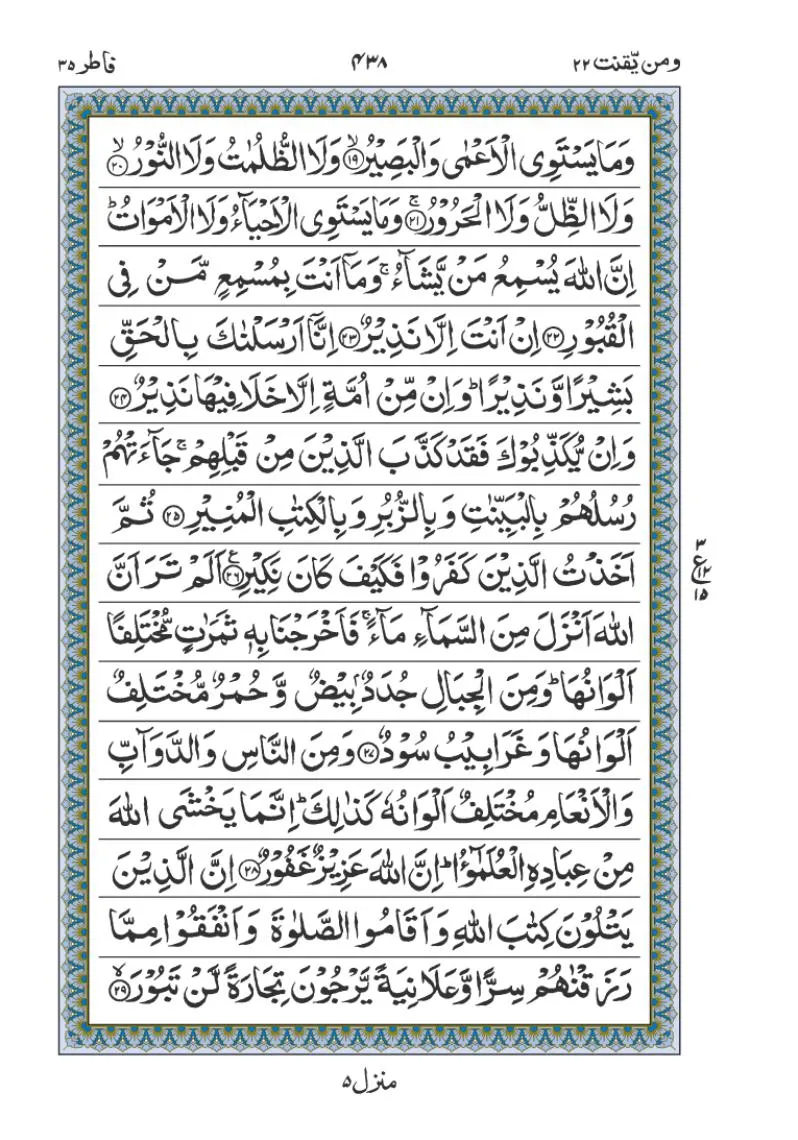 ومن يّقنت ۲۲
۴۳۸
فاطر ۳۵
وَمَا يَسْتَوِى الْاَعْمٰى وَالْبَصِيْرُۙ‏﴿۱۹﴾ وَلَا الظُّلُمٰتُ وَلَا النُّوْرُۙ‏﴿۲۰﴾
وَلَا الظِّلُّ وَلَا الْحَرُوْرُۚ‏﴿۲۱﴾ وَمَا يَسْتَوِى الْاَحْيَآءُ وَلَا الْاَمْوَاتُؕ
اِنَّ اللّٰهَ يُسْمِعُ مَنْ يَّشَآءُۚ وَمَاۤ اَنْتَ بِمُسْمِعٍ مَّنْ فِى
الْقُبُوْرِ‏﴿۲۲﴾ اِنْ اَنْتَ اِلَّا نَذِيْرٌ‏﴿۲۳﴾ اِنَّاۤ اَرْسَلْنٰكَ بِالْحَقِّ
بَشِيْرًا وَّنَذِيْرًاؕ وَاِنْ مِّنْ اُمَّةٍ اِلَّا خَلَا فِيْهَا نَذِيْرٌ‏﴿۲۴﴾
وَاِنْ يُّكَذِّبُوْكَ فَقَدْ كَذَّبَ الَّذِيْنَ مِنْ قَبْلِهِمْۚ جَآءَتْهُمْ
رُسُلُهُمْ بِالْبَيِّنٰتِ وَبِالزُّبُرِ وَبِالْكِتٰبِ الْمُنِيْرِ‏﴿۲۵﴾ ثُمَّ
اَخَذْتُ الَّذِيْنَ كَفَرُوْا فَكَيْفَ كَانَ نَكِيْرِ‏﴿۲۶﴾ اَلَمْ تَرَ اَنَّ
۳
ع
۱۲
۱۵
اللّٰهَ اَنْزَلَ مِنَ السَّمَآءِ مَآءًۚ فَاَخْرَجْنَا بِهٖ ثَمَرٰتٍ مُّخْتَلِفًا
اَلْوَانُهَاؕ وَمِنَ الْجِبَالِ جُدَدٌۢ بِيْضٌ وَّحُمْرٌ مُّخْتَلِفٌ
اَلْوَانُهَا وَغَرَابِيْبُ سُوْدٌ‏﴿۲۷﴾ وَمِنَ النَّاسِ وَالدَّوَآبِّ
وَالْاَنْعَامِ مُخْتَلِفٌ اَلْوَانُهٗ كَذٰلِكَؕ اِنَّمَا يَخْشَى اللّٰهَ
مِنْ عِبَادِهِ الْعُلَمٰٓؤُاؕ اِنَّ اللّٰهَ عَزِيْزٌ غَفُوْرٌ‏﴿۲۸﴾ اِنَّ الَّذِيْنَ
يَتْلُوْنَ كِتٰبَ اللّٰهِ وَاَقَامُوا الصَّلٰوةَ وَاَنْفَقُوْا مِمَّا
رَزَقْنٰهُمْ سِرًّا وَّعَلَانِيَةً يَّرْجُوْنَ تِجَارَةً لَّنْ تَبُوْرَۙ‏﴿۲۹﴾
منزل ۵